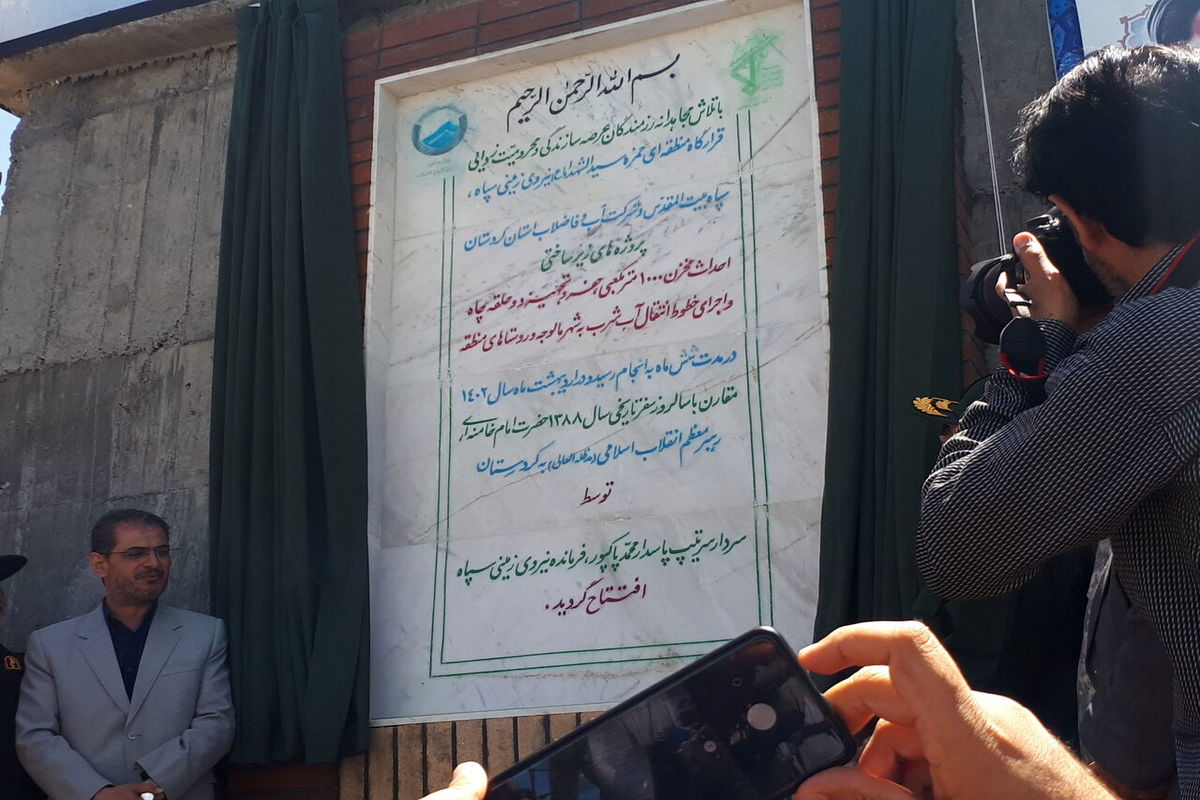 بسم الله الرّحمن الرّحیم
با تلاش مجاهدانه رزمندگان عرصه سازندگی و محرومیّت زدوایی
قرارگاه منطقه ای حمزه سیدالشهدا(ع) نیروی زمینی سپاه ،
سپاه بیت المقدّس و شرکت آب و فاضلاب استان کردستان
پروژه های زیرساختی
احداث مخزن ۱۰۰۰ متر مکعبی، حفر و تجهیز دو حلقه چاه
و اجرای خطوط انتقال آب شرب به شهر مالوجه و روستاهای منطقه
در مدت شش ماه به انجام رسید و در اردیبهشت ماه سال ۱۴۰۲
متقارن با سالروز سفر تاریخی سال ۱۳۸۸ حضرت امام خامنه ای،
رهبر معظم انقلاب اسلامی (مدظله العالی) به کردستان
توسط
سردار سرتیپ پاسدار محمّد پاکپور، فرمانده نیروی زمینی سپاه
افتتاح گردید .